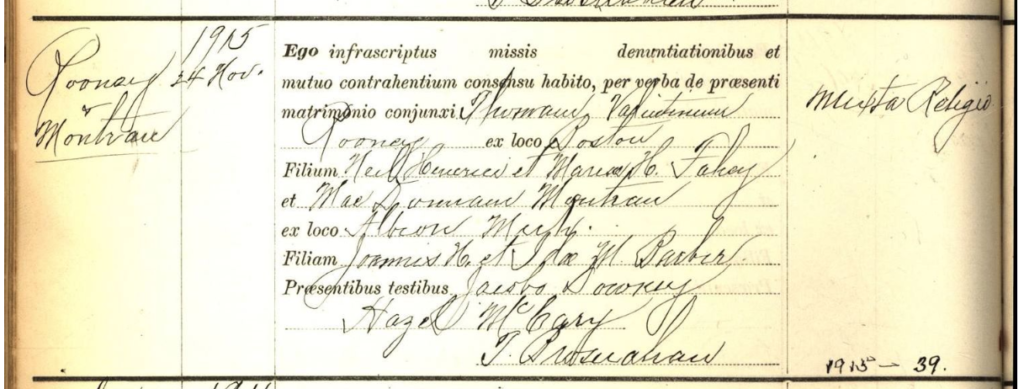 Rooney
Montran
1915
24 Nov.
Ego infrascriptus missis denuntiationibus et
mutuo contrahentium consensu habito, per verba de præsenti
matrimonio conjunxi Thomam Valentinum
Rooney ex loco Boston
Filium Neil Henerici et Mariae H. Fahey
et Mae Montran
ex loco Albion Mich.
Filiam Joannis H. et Idae M. Barber.
Præsentibus testibus Jacobo Downey
Hazel McGary
T. Brosnahan
Mixta Religio
1915 - 39.